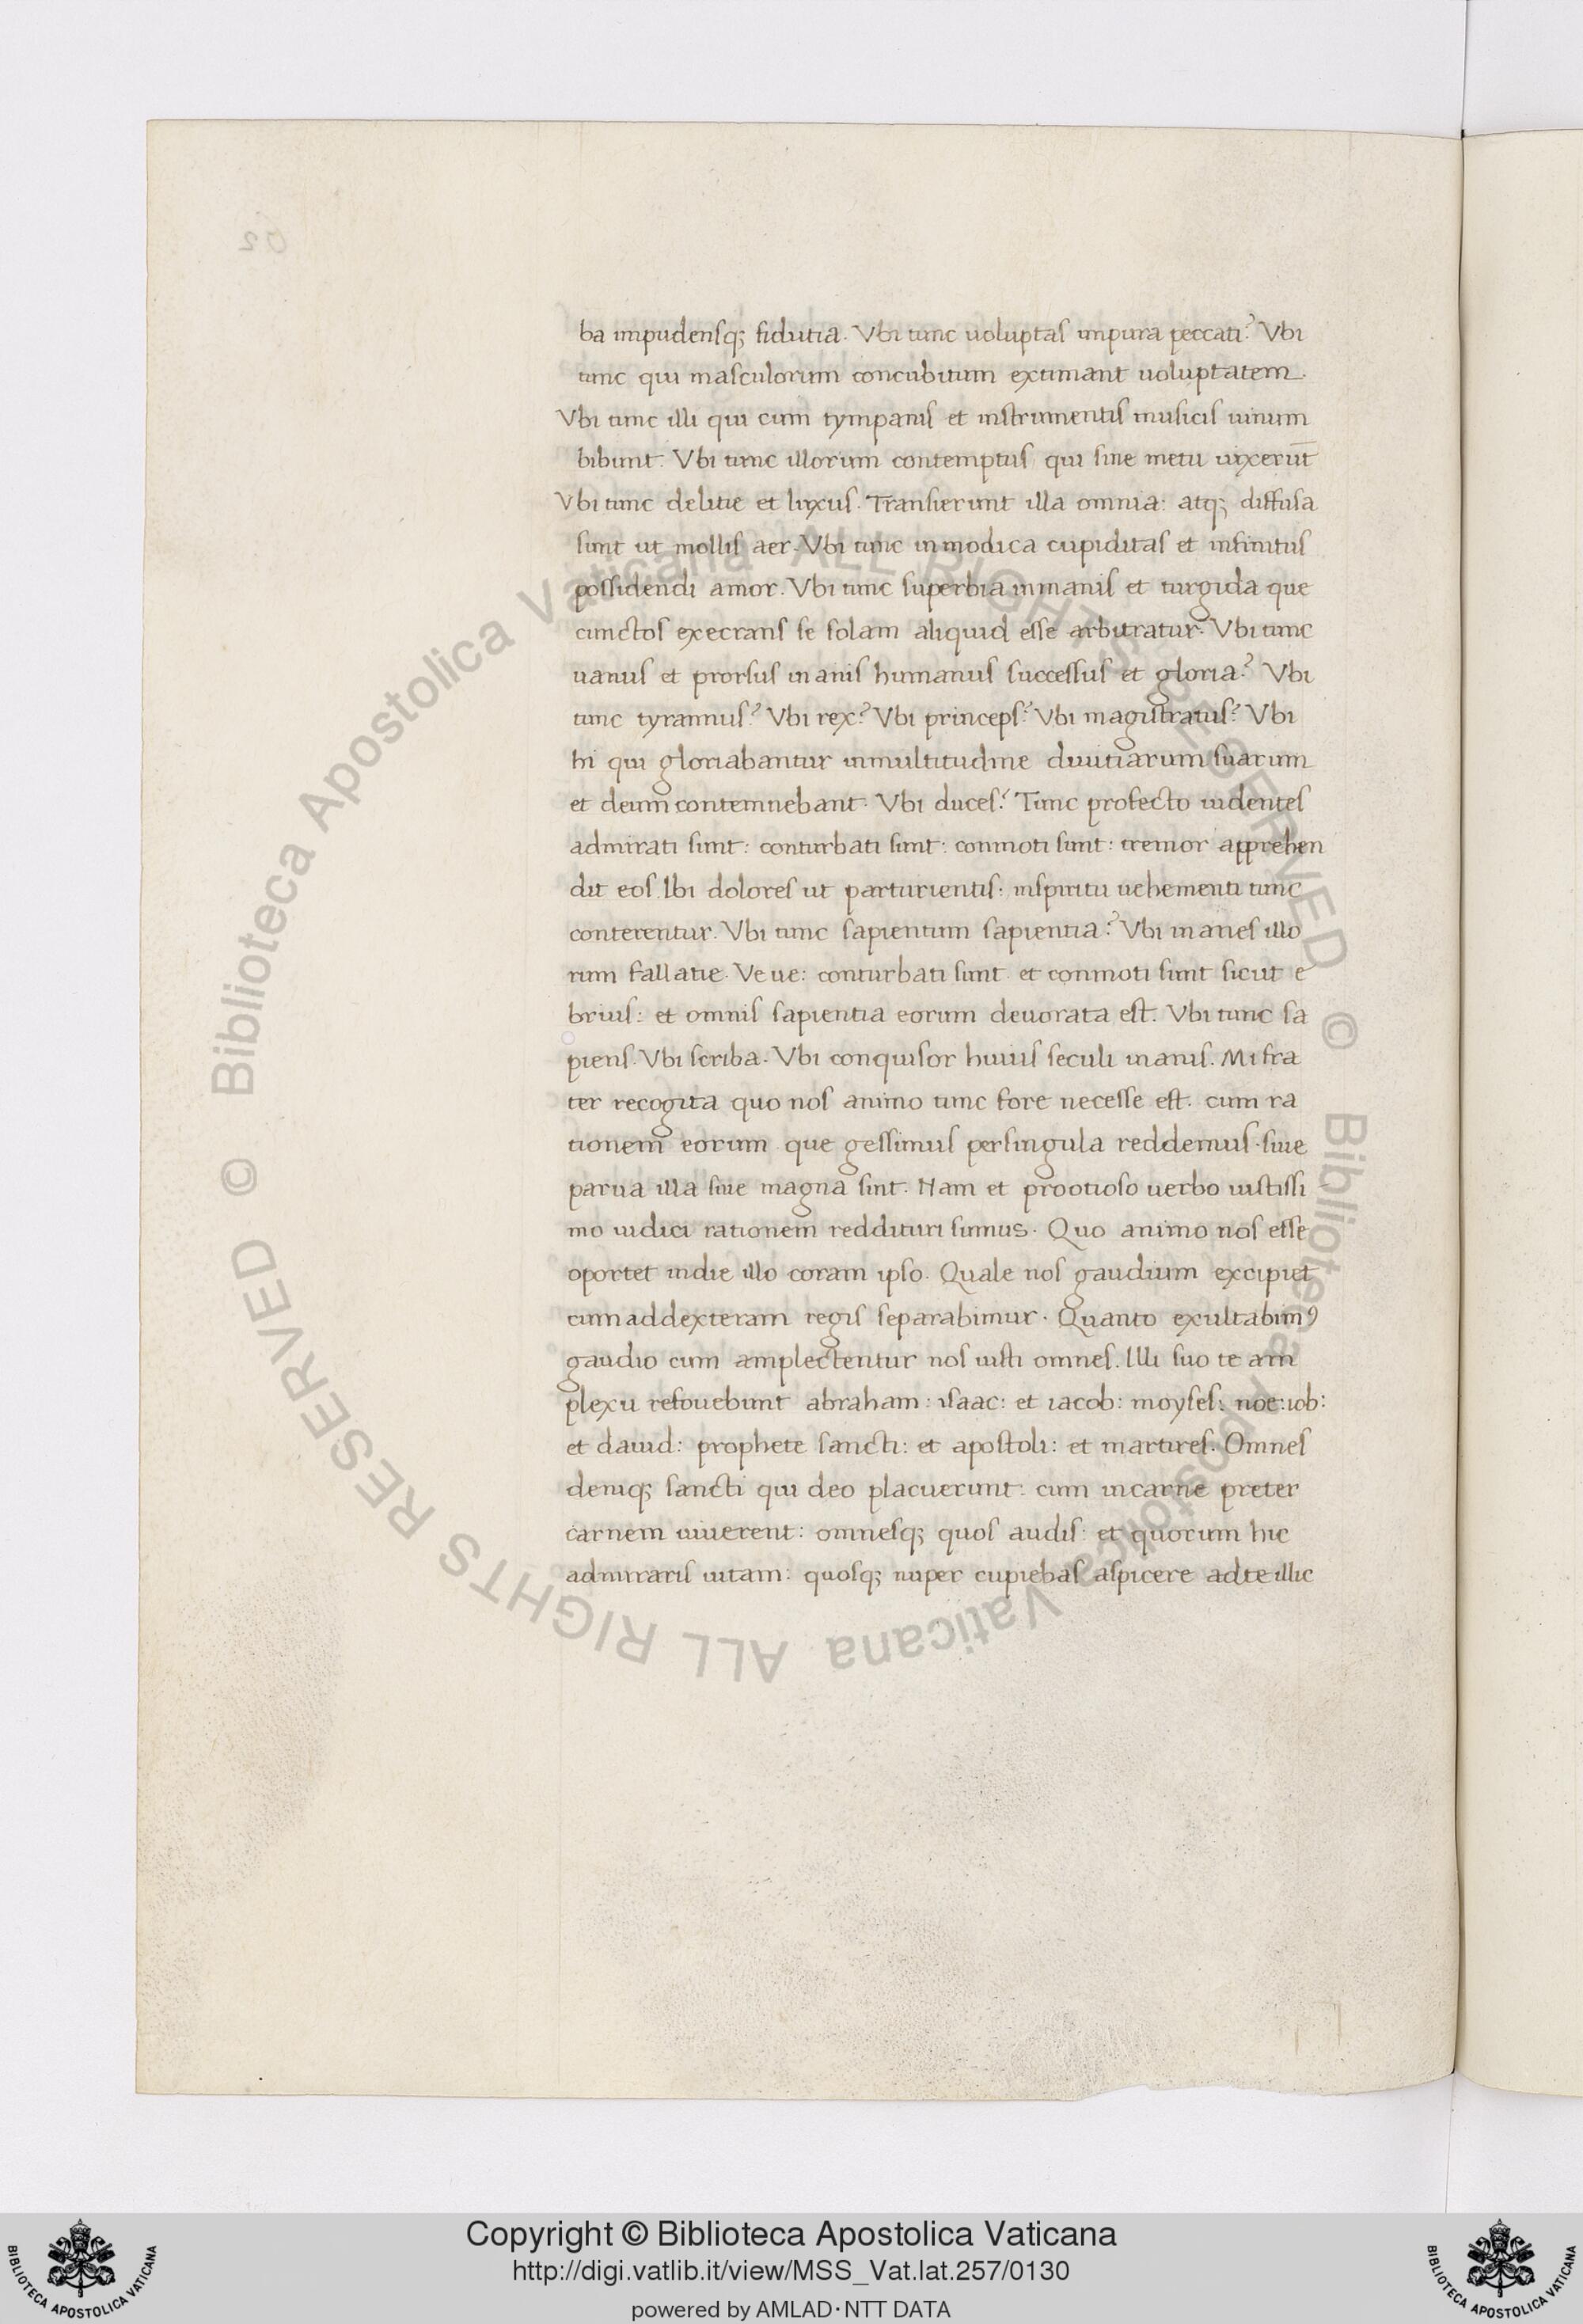 ba impudensq; fidutia. Vbi tunc uoluptas impura peccati? Vbi
tunc qui masculorum concubitum extimant uoluptatem.
Vbi tunc illi qui cum tympanis et instrumentis musicis uinum
bibunt. Vbi tunc illorum contemptus qui sine metu uixerūt
Vbi tunc delitie et luxus. Transierunt illa omnia: atq; diffusa
sunt ut mollis aer. Vbi tunc inmodica cupiditas et infinitus
possidendi amor. Vbi tunc superbia inmanis et turgida que
cunctos execrans se solam aliquid esse arbitratur. Vbi tunc
uanus et prorsus inanis humanus successus et gloria? Vbi
tunc tyrannus? Vbi rex? Vbi princeps? Vbi magistratus? Vbi
hi qui gloriabantur inmultitudine diuitiarum suarum
et deum contemnebant. Vbi duces? Tunc profecto uidentes
admirati sunt: conturbati sunt: conmoti sunt: tremor apprehen
dit eos. Ibi dolores ut parturientis: inspiritu uehementi tunc
conterentur. Vbi tunc sapientum sapientia? Vbi inanes illo
rum fallatie. Ve ue: conturbati sunt et conmoti sunt sicut e
brius: et omnis sapientia eorum deuorata est. Vbi tunc sa
piens. Vbi scriba. Vbi conquisor huius seculi inanis. Mi fra
ter recogita quo nos animo tunc fore necesse est. cum ra
tionem eorum que gessimus persingula reddemus. siue
parua illa siue magna sint. Nam et prootioso uerbo iustissi
mo iudici rationem reddituri sumus. Quo animo nos esse
oportet indie illo coram ipso. Quale nos gaudium excipiet
cum addexteram regis separabimur. Quanto exultabimꝰ
gaudio cum amplectentur nos iusti omnes. Illi suo te am
plexu refouebunt abraham: isaac: et iacob: moyses: noe: iob:
et dauid: prophete sancti: et apostoli: et martires. Omnes
deniq; sancti qui deo placuerunt: cum incarne preter
carnem uiuerent: omnesq; quos audis: et quorum hic
admiraris uitam: quosq; nuper cupiebas aspicere adte illic
© Biblioteca Apostolica Vaticana ALL RIGHTS RESERVED © Biblioteca Apostolica Vaticana ALL RIGHTS RESERVED
Copyright © Biblioteca Apostolica Vaticana
http://digi.vatlib.it/view/MSS_Vat.lat.257/0130
powered by AMLAD･NTT DATA
BIBLIOTECA APOSTOLICA VATICANA
BIBLIOTECA APOSTOLICA VATICANA